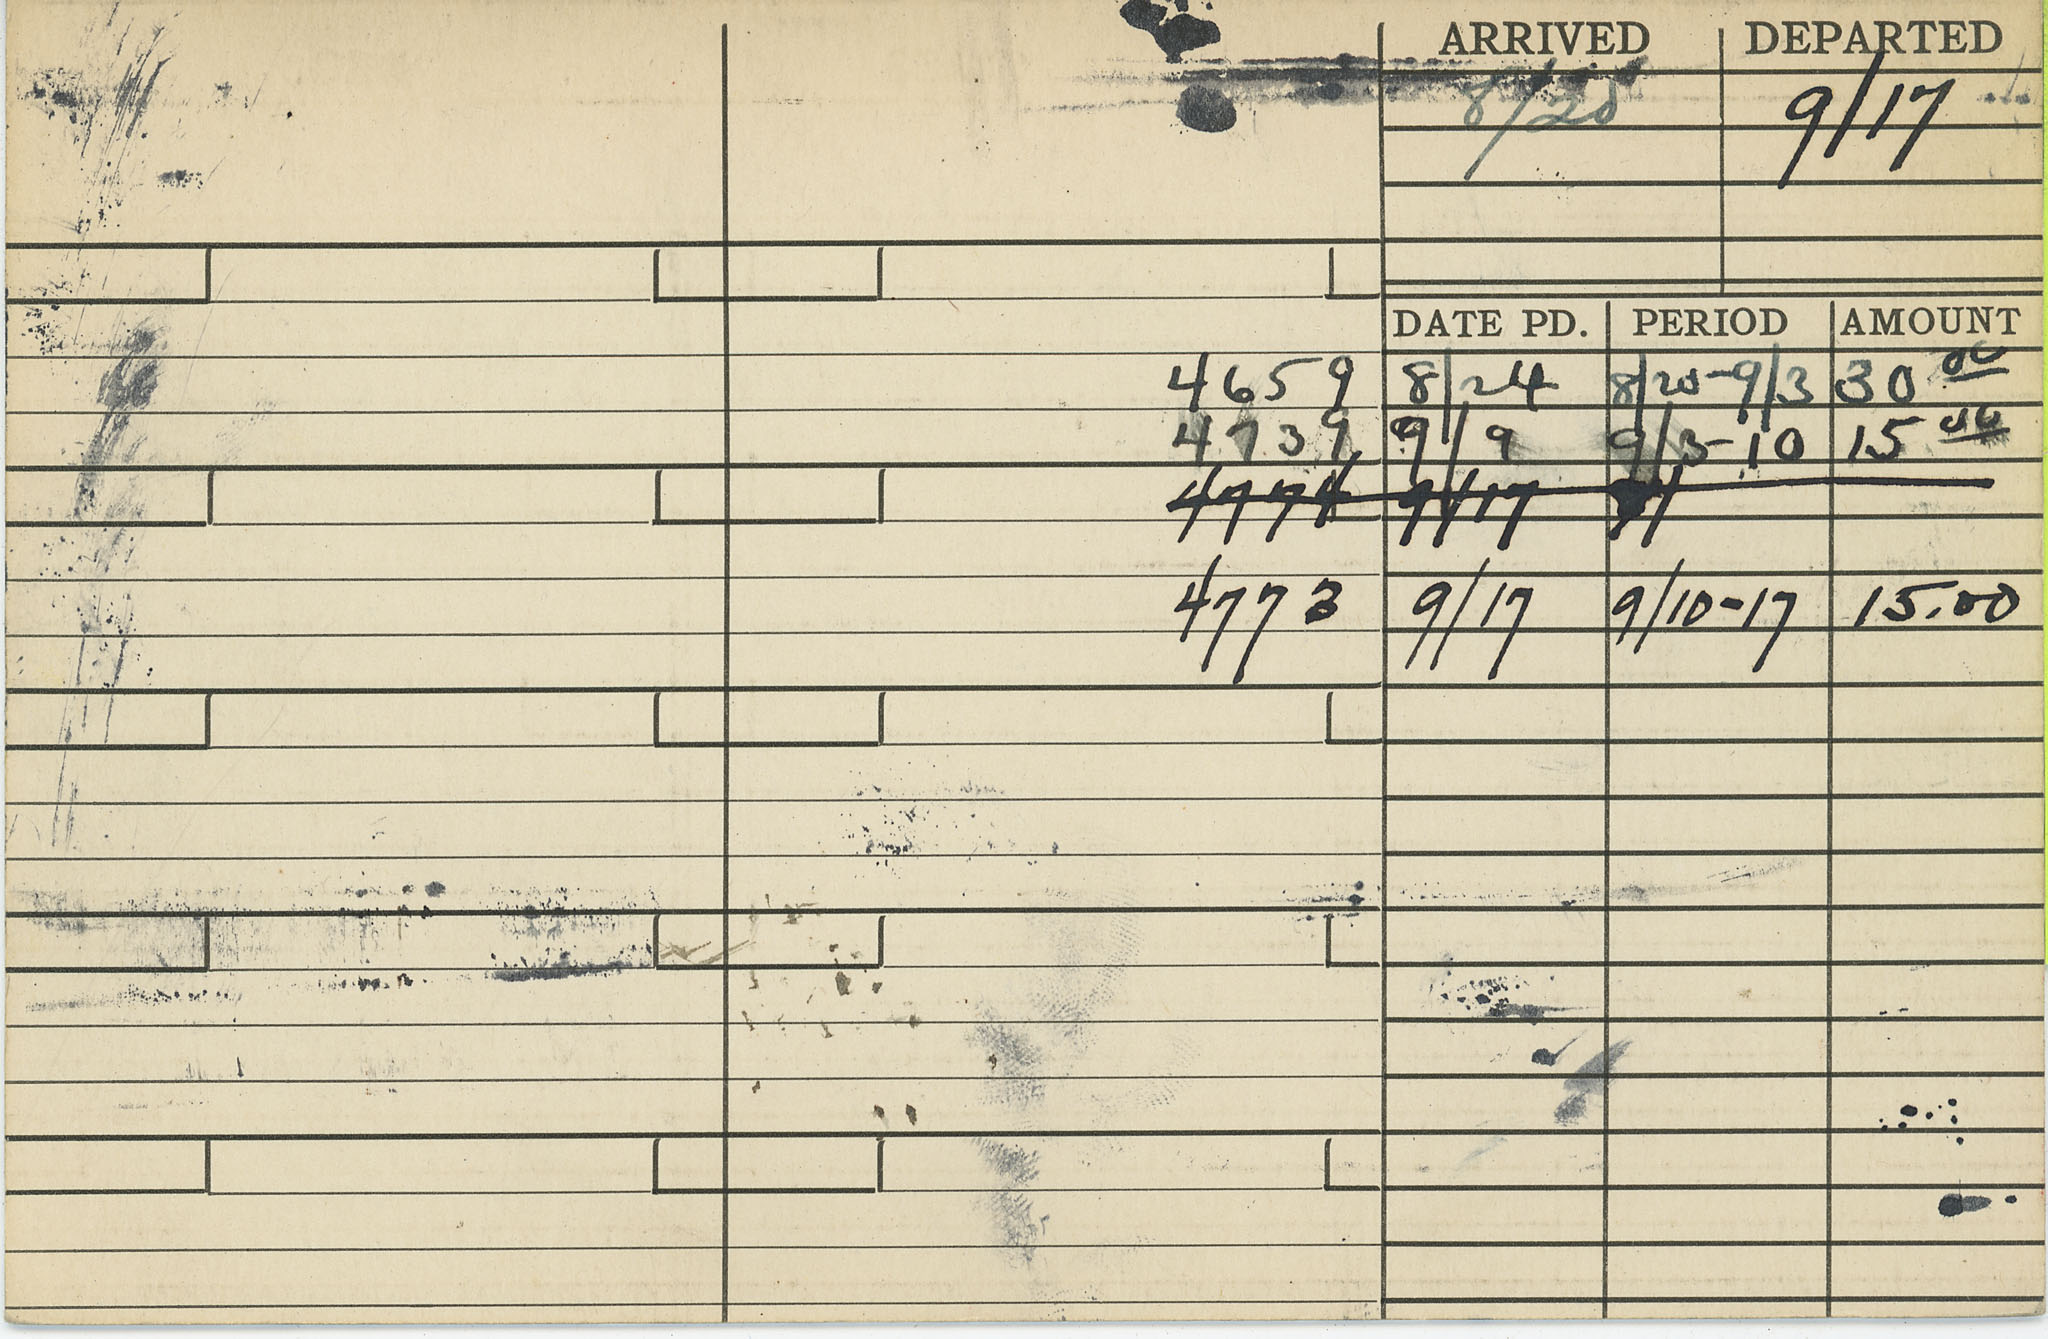 ARRIVED DEPARTED
8/20 9/17
DATE PD. PERIOD AMOUNT
4659 8/24 8/20-9/3 30 00
4739 9/9 9/3-10 15 00
4774 9/17 9/
4773 9/17 9/10-17 15.00